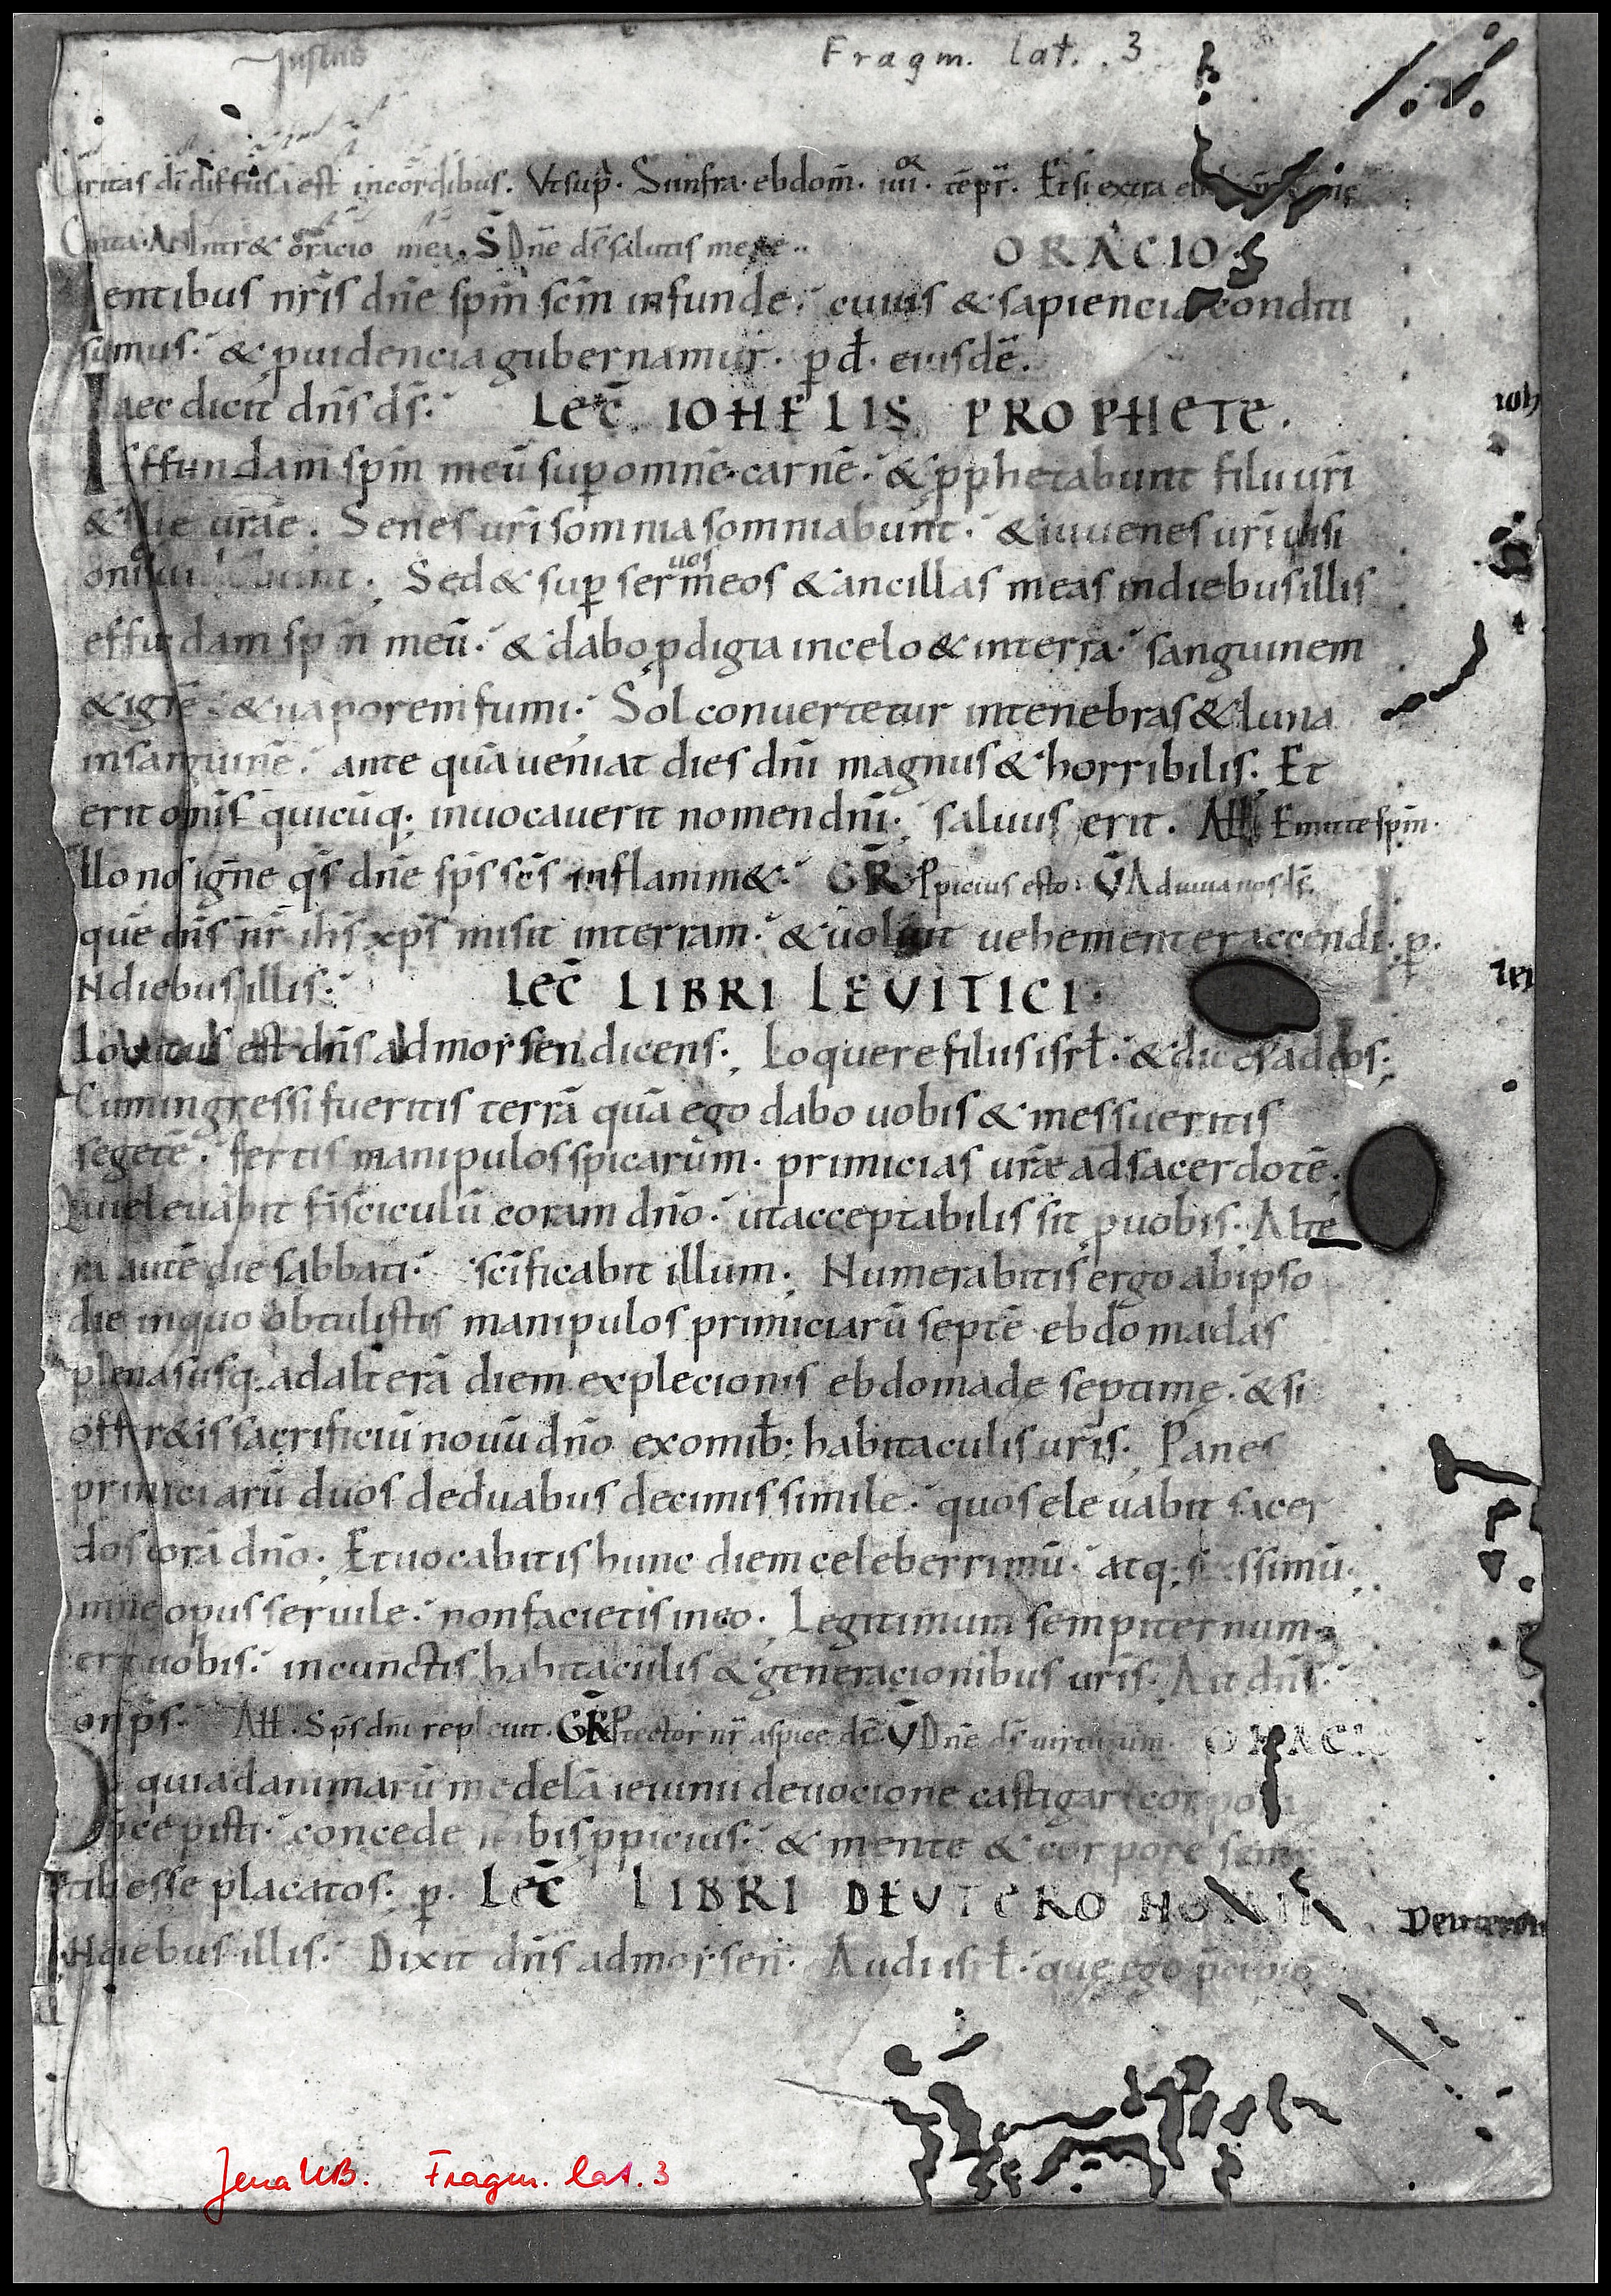 Fragm. lat. 3
Caritas dī diffusa est in cordibus. Vt sup̄. Si infra ebdom̄. iiii. tēpr̄. Et si extra
Intr& oracio mea. S Dn̄e ds̄ salutis meae ORACIO
entibus nr̄is dn̄e sp̄m scm̄ infunde. cuius & sapiencia conditi
sumus. & ꝓuidencia gubernamur. p d̄. eiusdē.
Haec dicit dn̄s ds̄. LEC̄ IOHELIS PROPHETE.
Effundam sp̄m meū sup omnē carnē. & ꝓphetabunt filii ur̄i
& filie ur̄ae. Senes ur̄i somnia somniabunt. & iuuenes ur̄i uisi
Sed & sup seruos meos & ancillas meas in diebus illis
effundam sp̄m meū. & dabo ꝓdigia in celo & in terra. sanguinem
& ignē & uaporem fumi. Sol conuertetur in tenebras & luna
in sanguinē. ante quā ueniat dies dn̄i magnus & horribilis. Et
erit omīs quicūq; inuocauerit nomen dn̄i. saluus erit. All Emitte sp̄m.
Illo nos igne qs̄ dn̄e sp̄s scs̄ inflamm&. GR̄ Ppicius esto. V̄ Adiuua nos ds̄.
quē dn̄s nr̄ ih̄s xp̄s misit in terram. & uoluit uehementer accendi. p.
In diebus illis. LEC̄ LIBRI LEVITICI.
Locutus est dn̄s ad morsen dicens. Loquere filiis isrl̄. & dices ad eos.
Cum ingressi fueritis terrā quā ego dabo uobis & messueritis
segetē. fertis manipulos spicarum. primicias ur̄ae ad sacerdotē.
Qui eleuabit fasciculū coram dn̄o. ut acceptabilis sit ꝓ uobis. Alte
ra autē die sabbati. sc̄ificabit illum. Numerabitis ergo ab ipso
die in quo obtulistis manipulos primiciarū septē ebdomadas
plenas usq; ad alterā diem explecionis ebdomade septime. & si
offer&is sacrificiū nouū dn̄o ex omīb; habitaculis ur̄is. Panes
primiciarū duos de duabus decimis simile. quos eleuabit sacer
dos corā dn̄o. Et uocabitis hunc diem celeberrimū. atq; scissimū.
omne opus seruile. non facietis in eo. Legitimum sempiternum
erit uobis. in cunctis habitaculis & generacionibus ur̄is. Ait dn̄s
om̄ps. All. Sp̄s dn̄i repleuit. GR̄ Ptector nr̄ aspice ds̄ V̄ Dn̄e ds̄ uirtutum. ORACIO
qui ad animarū medelā ieiunii deuocione castigari corpora
p̄cepisti. concede nobis ꝓpicius. & mente & corpore semp
tibi esse placatos. p. LEC̄ LIBRI DEUTERONOMII
In diebus illis. Dixit dn̄s ad morsen. Audi isrl̄. que ego p̄cipio
Jena UB. Fragm. lat. 3